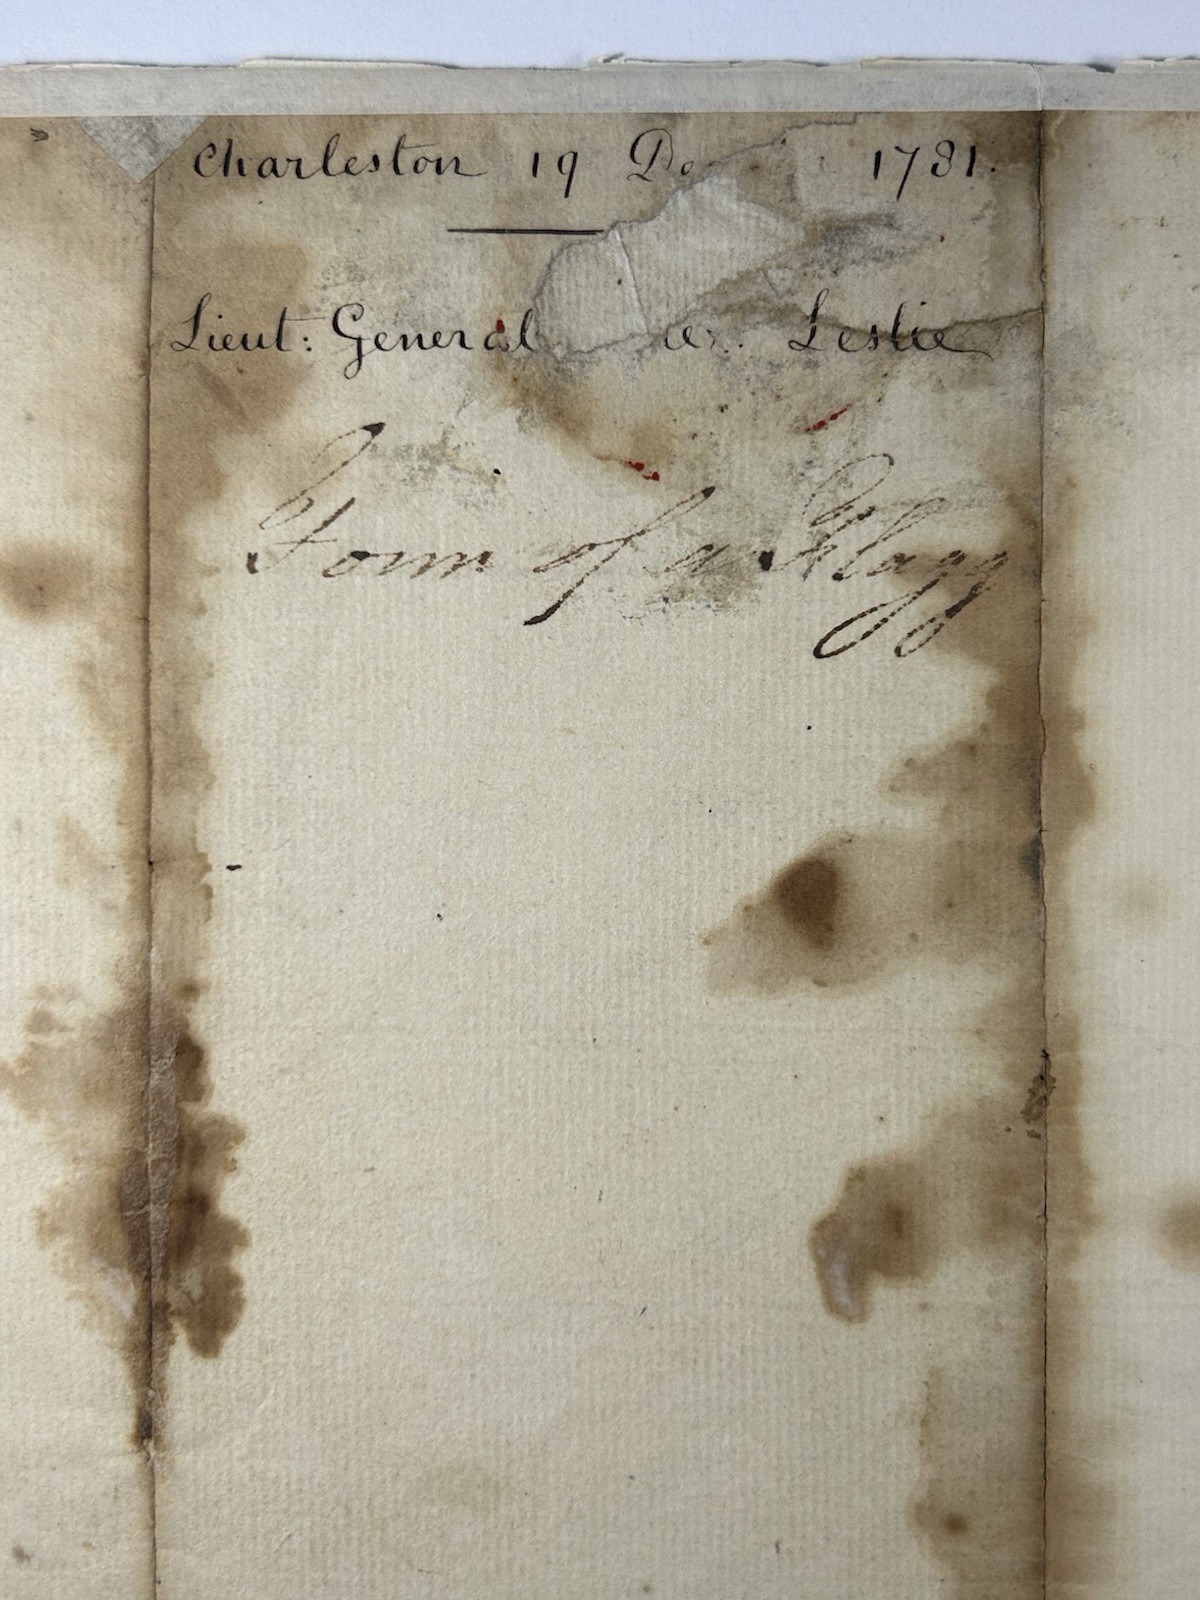 Charleston 19 1781.
Lieut: General Leslie
Form of a Flagg